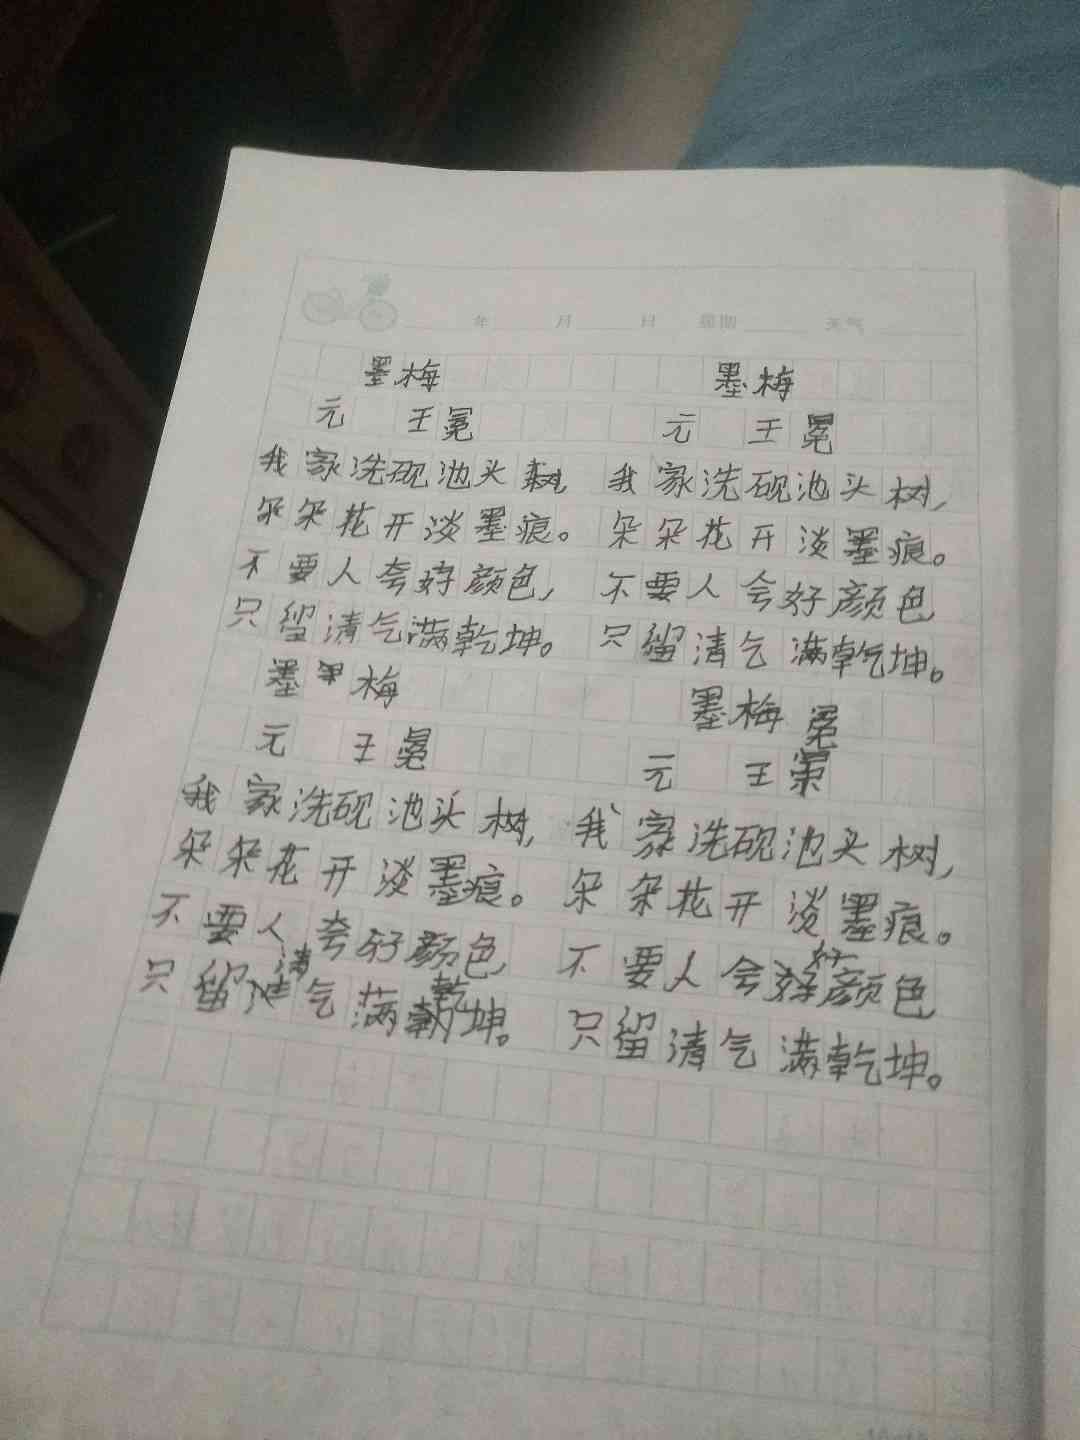 年 月 日 星期 天气
墨梅
元 王冕
我家洗砚池头树,
朵朵花开淡墨痕。
不要人夸好颜色,
只留清气满乾坤。
墨梅
元 王冕
我家洗砚池头树,
朵朵花开淡墨痕。
不要人夸好颜色
只留清气满乾坤。
墨梅
元 王冕
我家洗砚池头树,
朵朵花开淡墨痕。
不要人夸好颜色,
只留清气满乾坤。
墨梅
元 王冕
我家洗砚池头树,
朵朵花开淡墨痕。
不要人会好颜色
只留清气满乾坤。